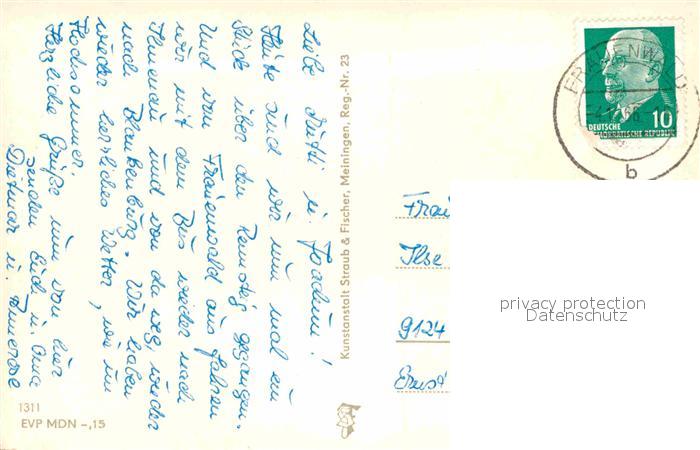 Liebe Mutti u. Joachim!
Heute sind wir nun mal ein
Stück über den Rennsteig gegangen.
Und von Frauenwald aus fahren
wir mit dem Bus wieder nach
Ilmenau und von da weg, wieder
nach Blankenburg. Wir haben
wieder herrliches Wetter, wie im
Hochsommer.
Herzliche Grüße nun von hier
senden Euch u. Oma
Dietmar u.
Kunstanstalt Straub & Fischer, Meiningen, Reg.-Nr. 23
1311
EVP MDN -,15
FRAUENWALD
b
10
DEUTSCHE
DEMOKRATISCHE REPUBLIK
Frau
Ilse
9124
Ernst
privacy protection
Datenschutz